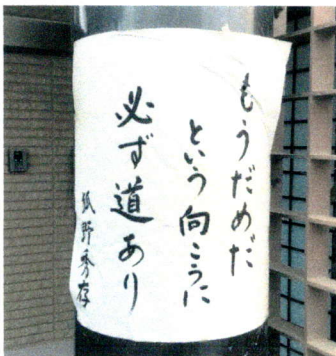 もうだめだ
という向こうに
必ず道あり
狐野秀存